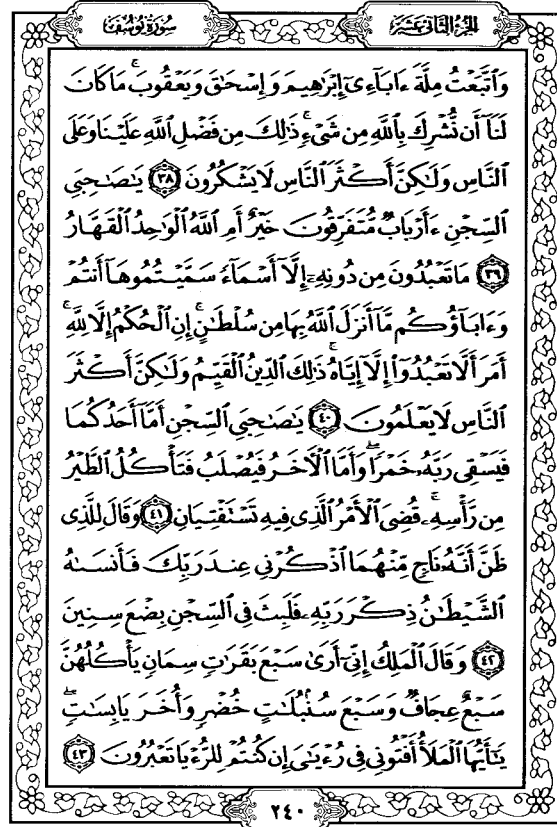 سُورَةُ يُوسُفَ
الجُزْءُ الثَّانِي عَشَر
وَٱتَّبَعْتُ مِلَّةَ ءَابَآءِىٓ إِبْرَٰهِيمَ وَإِسْحَٰقَ وَيَعْقُوبَ ۚ مَا كَانَ
لَنَآ أَن نُّشْرِكَ بِٱللَّهِ مِن شَىْءٍ ۚ ذَٰلِكَ مِن فَضْلِ ٱللَّهِ عَلَيْنَا وَعَلَى
ٱلنَّاسِ وَلَٰكِنَّ أَكْثَرَ ٱلنَّاسِ لَا يَشْكُرُونَ ٣٨ يَٰصَٰحِبَىِ
ٱلسِّجْنِ ءَأَرْبَابٌ مُّتَفَرِّقُونَ خَيْرٌ أَمِ ٱللَّهُ ٱلْوَٰحِدُ ٱلْقَهَّارُ
٣٩ مَا تَعْبُدُونَ مِن دُونِهِۦٓ إِلَّآ أَسْمَآءً سَمَّيْتُمُوهَآ أَنتُمْ
وَءَابَآؤُكُم مَّآ أَنزَلَ ٱللَّهُ بِهَا مِن سُلْطَٰنٍ ۚ إِنِ ٱلْحُكْمُ إِلَّا لِلَّهِ ۚ
أَمَرَ أَلَّا تَعْبُدُوٓا۟ إِلَّآ إِيَّاهُ ۚ ذَٰلِكَ ٱلدِّينُ ٱلْقَيِّمُ وَلَٰكِنَّ أَكْثَرَ
ٱلنَّاسِ لَا يَعْلَمُونَ ٤٠ يَٰصَٰحِبَىِ ٱلسِّجْنِ أَمَّآ أَحَدُكُمَا
فَيَسْقِى رَبَّهُۥ خَمْرًا ۖ وَأَمَّا ٱلْءَاخَرُ فَيُصْلَبُ فَتَأْكُلُ ٱلطَّيْرُ
مِن رَّأْسِهِۦ ۚ قُضِىَ ٱلْأَمْرُ ٱلَّذِى فِيهِ تَسْتَفْتِيَانِ ٤١ وَقَالَ لِلَّذِى
ظَنَّ أَنَّهُۥ نَاجٍ مِّنْهُمَا ٱذْكُرْنِى عِندَ رَبِّكَ فَأَنسَىٰهُ
ٱلشَّيْطَٰنُ ذِكْرَ رَبِّهِۦ فَلَبِثَ فِى ٱلسِّجْنِ بِضْعَ سِنِينَ
٤٢ وَقَالَ ٱلْمَلِكُ إِنِّىٓ أَرَىٰ سَبْعَ بَقَرَٰتٍ سِمَانٍ يَأْكُلُهُنَّ
سَبْعٌ عِجَافٌ وَسَبْعَ سُنۢبُلَٰتٍ خُضْرٍ وَأُخَرَ يَابِسَٰتٍ ۖ
يَٰٓأَيُّهَا ٱلْمَلَأُ أَفْتُونِى فِى رُءْيَٰىَ إِن كُنتُمْ لِلرُّءْيَا تَعْبُرُونَ ٤٣
٢٤٠